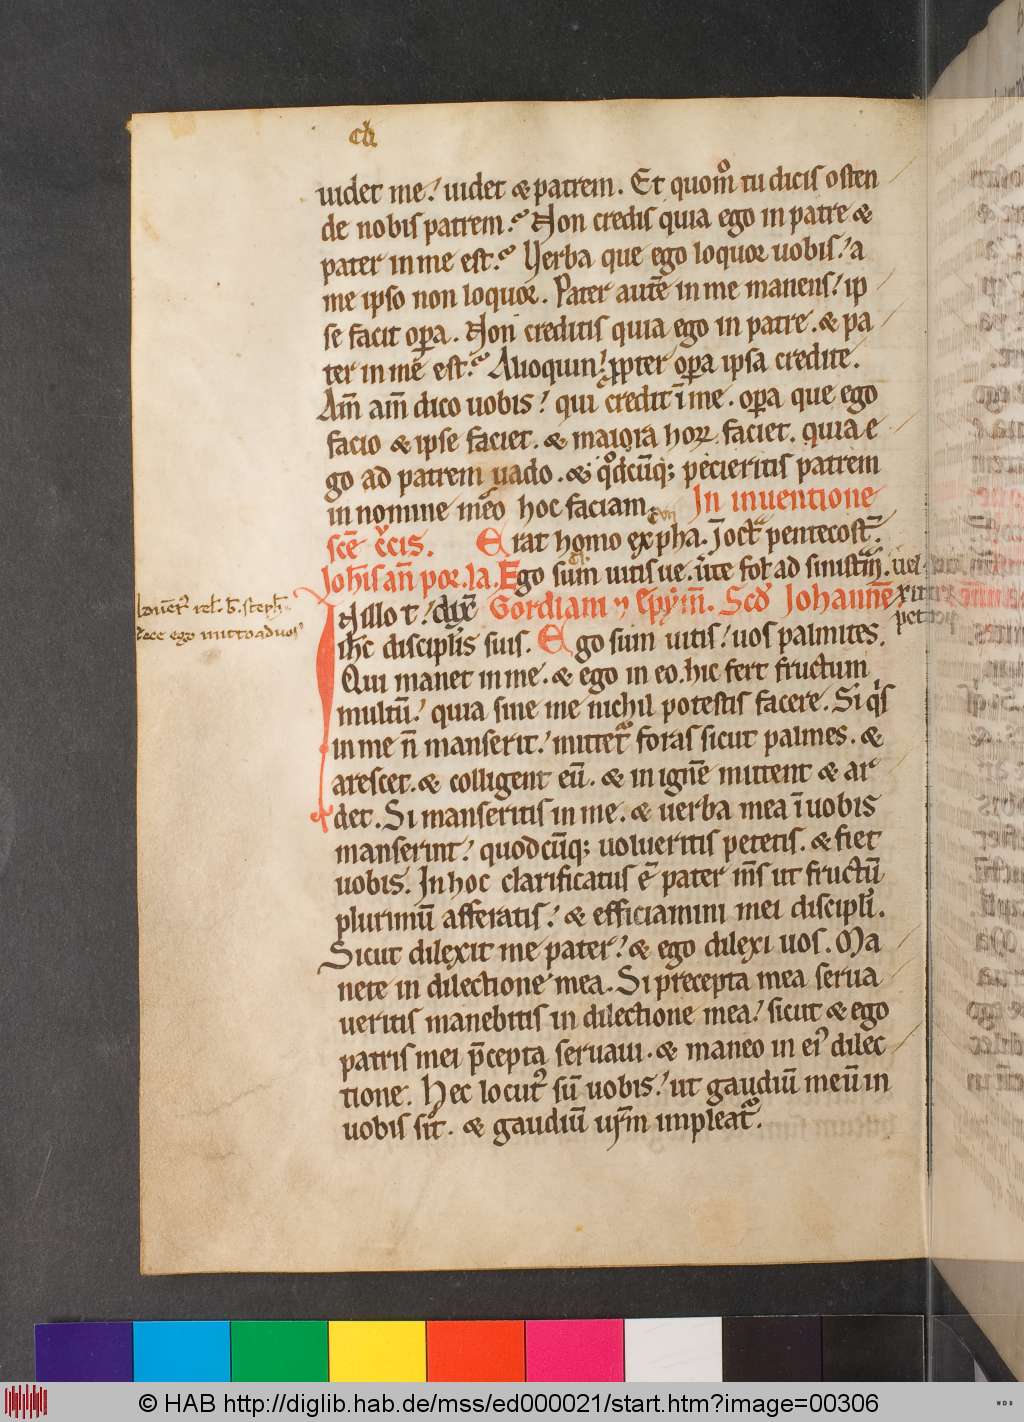 cli
uidet me. uidet & patrem. Et quom̊ tu dicis osten
de nobis patrem. Non credis quia ego in patre &
pater in me est. Verba que ego loquor uobis. a
me ipso non loquor. Pater autē in me manens. ip
se facit opa. Non creditis quia ego in patre. & pa
ter in me est. Alioquin. ꝓpter opa ipsa credite.
Am̄ am̄ dico uobis. qui credit ī me. opa que ego
facio & ipse faciet. & maiora hoꝝ faciet. quia e
go ad patrem uado. & qͦdcūq; pecieritis patrem
in nomine meo hoc faciam. In inuentione
scē c̄cis. Erat homo ex pha. J oct̄ pentecost̄.
Johis an̄ por. la. Ego sum uitis ue. ute fol ad sinistrā. uel
exitu
Gordiani ⁊ Epym̄. Scd Johannē
petri
Jn illo t. dix̄
lauēt̄ rel. b. steph̄
Ecce ego mitto ad uos
ih̄c disciplis suis. Ego sum uitis. uos palmites.
Qui manet in me. & ego in eo. hic fert fructum
multū. quia sine me nichil potestis facere. Si qis
in me n̄ manserit. mittet᷑ foras sicut palmes. &
arescet. & colligent eū. & in ignē mittent & ar
det. Si manseritis in me. & uerba mea ī uobis
manserint. quodcūq; uolueritis petetis. & fiet
uobis. Jn hoc clarificatus ē pater ms̄ ut fructū
plurimū afferatis. & efficiamini mei discipli.
Sicut dilexit me pater. & ego dilexi uos. Ma
nete in dilectione mea. Si precepta mea serua
ueritis manebitis in dilectione mea. sicut & ego
patris mei p̄cepta seruaui. & maneo in ei᷒ dilec
tione. Hec locut᷒ sū uobis. ut gaudiū meū in
uobis sit. & gaudiū ur̄m impleat᷑.
© HAB http://diglib.hab.de/mss/ed000021/start.htm?image=00306